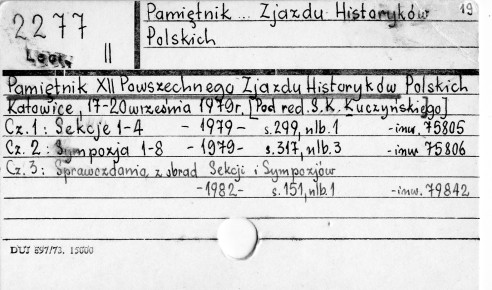 2277
II
Pamiętnik ... Zjazdu Historyków
19
Polskich
Pamiętnik XII Powszechnego Zjazdu Historyków Polskich
Katowice, 17-20 września 1979r. [Pod red. S.K. Kuczyńskiego]
Cz. 1: Sekcje 1-4 - 1979 - s. 299, nlb. 1 - inw. 75805
Cz. 2: Sympozja 1-8 - 1979 - s. 317, nlb. 3 - inw. 75806
Cz. 3: Sprawozdania z obrad Sekcji i Sympozjów
- 1982 - s. 151, nlb. 1 - inw. 79842
DUJ 897/73. 15000